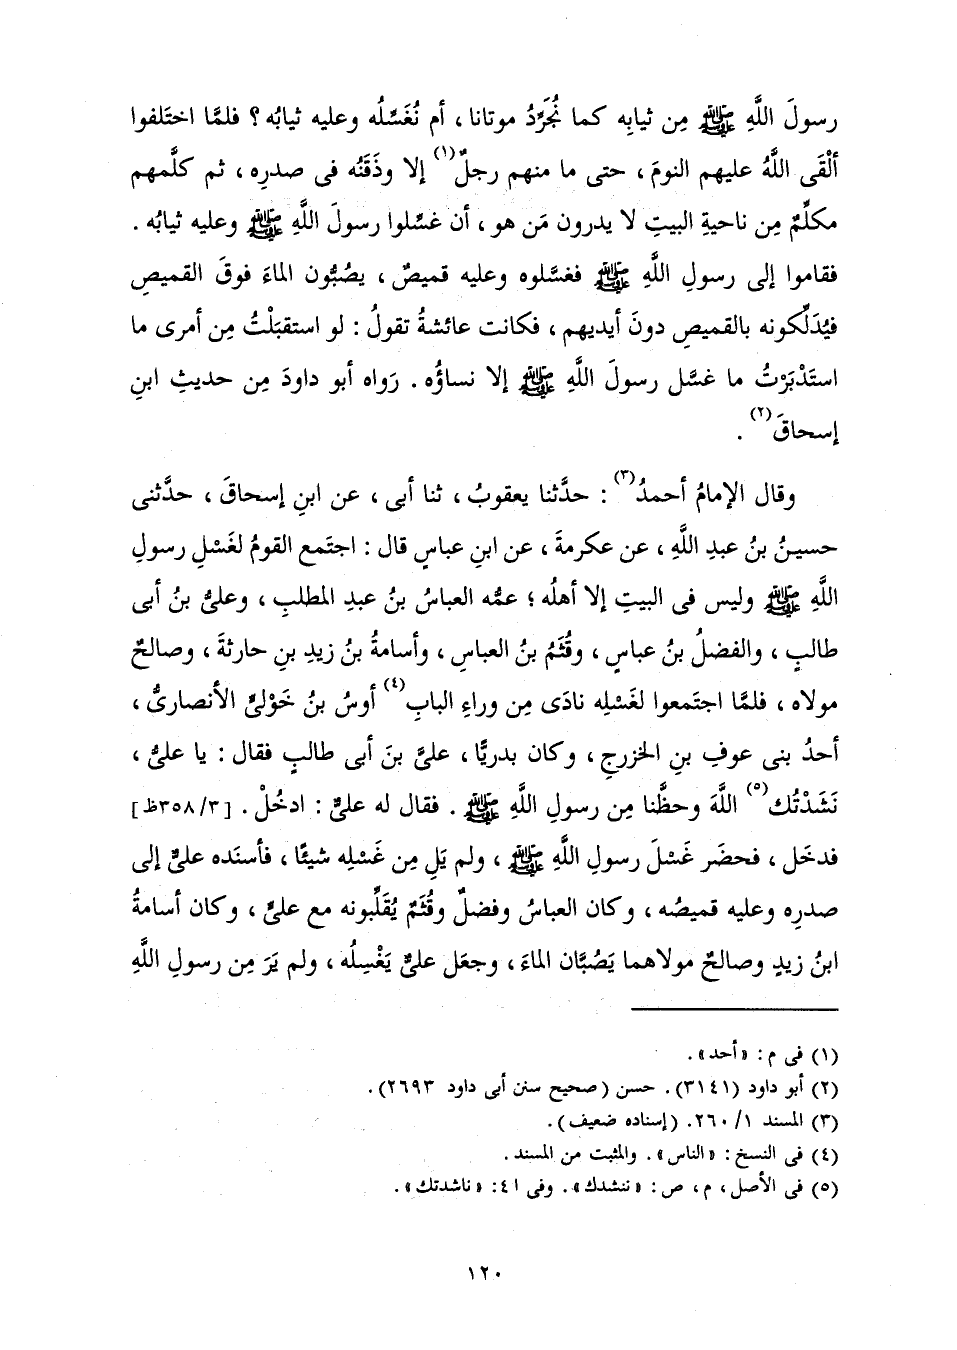 رسولَ اللَّهِ ﷺ مِن ثيابِه كما نُجَرِّدُ موتانا ، أم نُغَسِّلُه وعليه ثيابُه ؟ فلمَّا اختَلفوا
ألْقَى اللَّهُ عليهم النومَ ، حتى ما منهم رجلٌ(١) إلا وذَقَنُه فى صدرِه ، ثم كلَّمهم
مكلِّمٌ مِن ناحيةِ البيتِ لا يدرون مَن هو ، أن غسِّلوا رسولَ اللَّهِ ﷺ وعليه ثيابُه .
فقاموا إلى رسولِ اللَّهِ ﷺ فغسَّلوه وعليه قميصٌ ، يصُبُّون الماءَ فوقَ القميصِ
فيُدَلِّكونه بالقميصِ دونَ أيديهم ، فكانت عائشةُ تقولُ : لو استقبَلْتُ مِن أمرى ما
استَدْبَرْتُ ما غسَّل رسولَ اللَّهِ ﷺ إلا نساؤُه . رَواه أبو داودَ مِن حديثِ ابنِ
إسحاقَ(٢) .
وقال الإمامُ أحمدُ(٣) : حدَّثنا يعقوبُ ، ثنا أبى ، عن ابنِ إسحاقَ ، حدَّثنى
حسينُ بنُ عبدِ اللَّهِ ، عن عكرمةَ ، عن ابنِ عباسٍ قال : اجتَمع القومُ لغَسْلِ رسولِ
اللَّهِ ﷺ وليس فى البيتِ إلا أهلُه ؛ عمُّه العباسُ بنُ عبدِ المطلبِ ، وعلىُّ بنُ أبى
طالبٍ ، والفضلُ بنُ عباسٍ ، وقُثَمُ بنُ العباسِ ، وأسامةُ بنُ زيدِ بنِ حارثةَ ، وصالحٌ
مولاه ، فلمَّا اجتَمعوا لغَسْلِه نادَى مِن وراءِ البابِ(٤) أوسُ بنُ خَوْلىٍّ الأنصارىُّ ،
أحدُ بنى عوفِ بنِ الخزرجِ ، وكان بدريًّا ، علىَّ بنَ أبى طالبٍ فقال : يا علىُّ ،
نَشَدْتُك(٥) اللَّهَ وحظَّنا مِن رسولِ اللَّهِ ﷺ . فقال له علىٌّ : ادخُلْ . [٣٥٨/٣ظ]
فدخَل ، فحضَر غَسْلَ رسولِ اللَّهِ ﷺ ، ولم يَلِ مِن غَسْلِه شيئًا ، فأسنَده علىٌّ إلى
صدرِه وعليه قميصُه ، وكان العباسُ وفضلٌ وقُثَمُ يُقَلِّبونه مع علىٍّ ، وكان أسامةُ
ابنُ زيدٍ وصالحٌ مولاهما يَصُبَّان الماءَ ، وجعَل علىٌّ يَغْسِلُه ، ولم يَرَ مِن رسولِ اللَّهِ
(١) فى م : « أحد » .
(٢) أبو داود (٣١٤١) . حسن (صحيح سنن أبى داود ٢٦٩٣) .
(٣) المسند ١/ ٢٦٠. (إسناده ضعيف) .
(٤) فى النسخ : « الناس » . والمثبت من المسند .
(٥) فى الأصل ، م ، ص : « ننشدك » . وفى ٤١: « ناشدتك » .
١٢٠